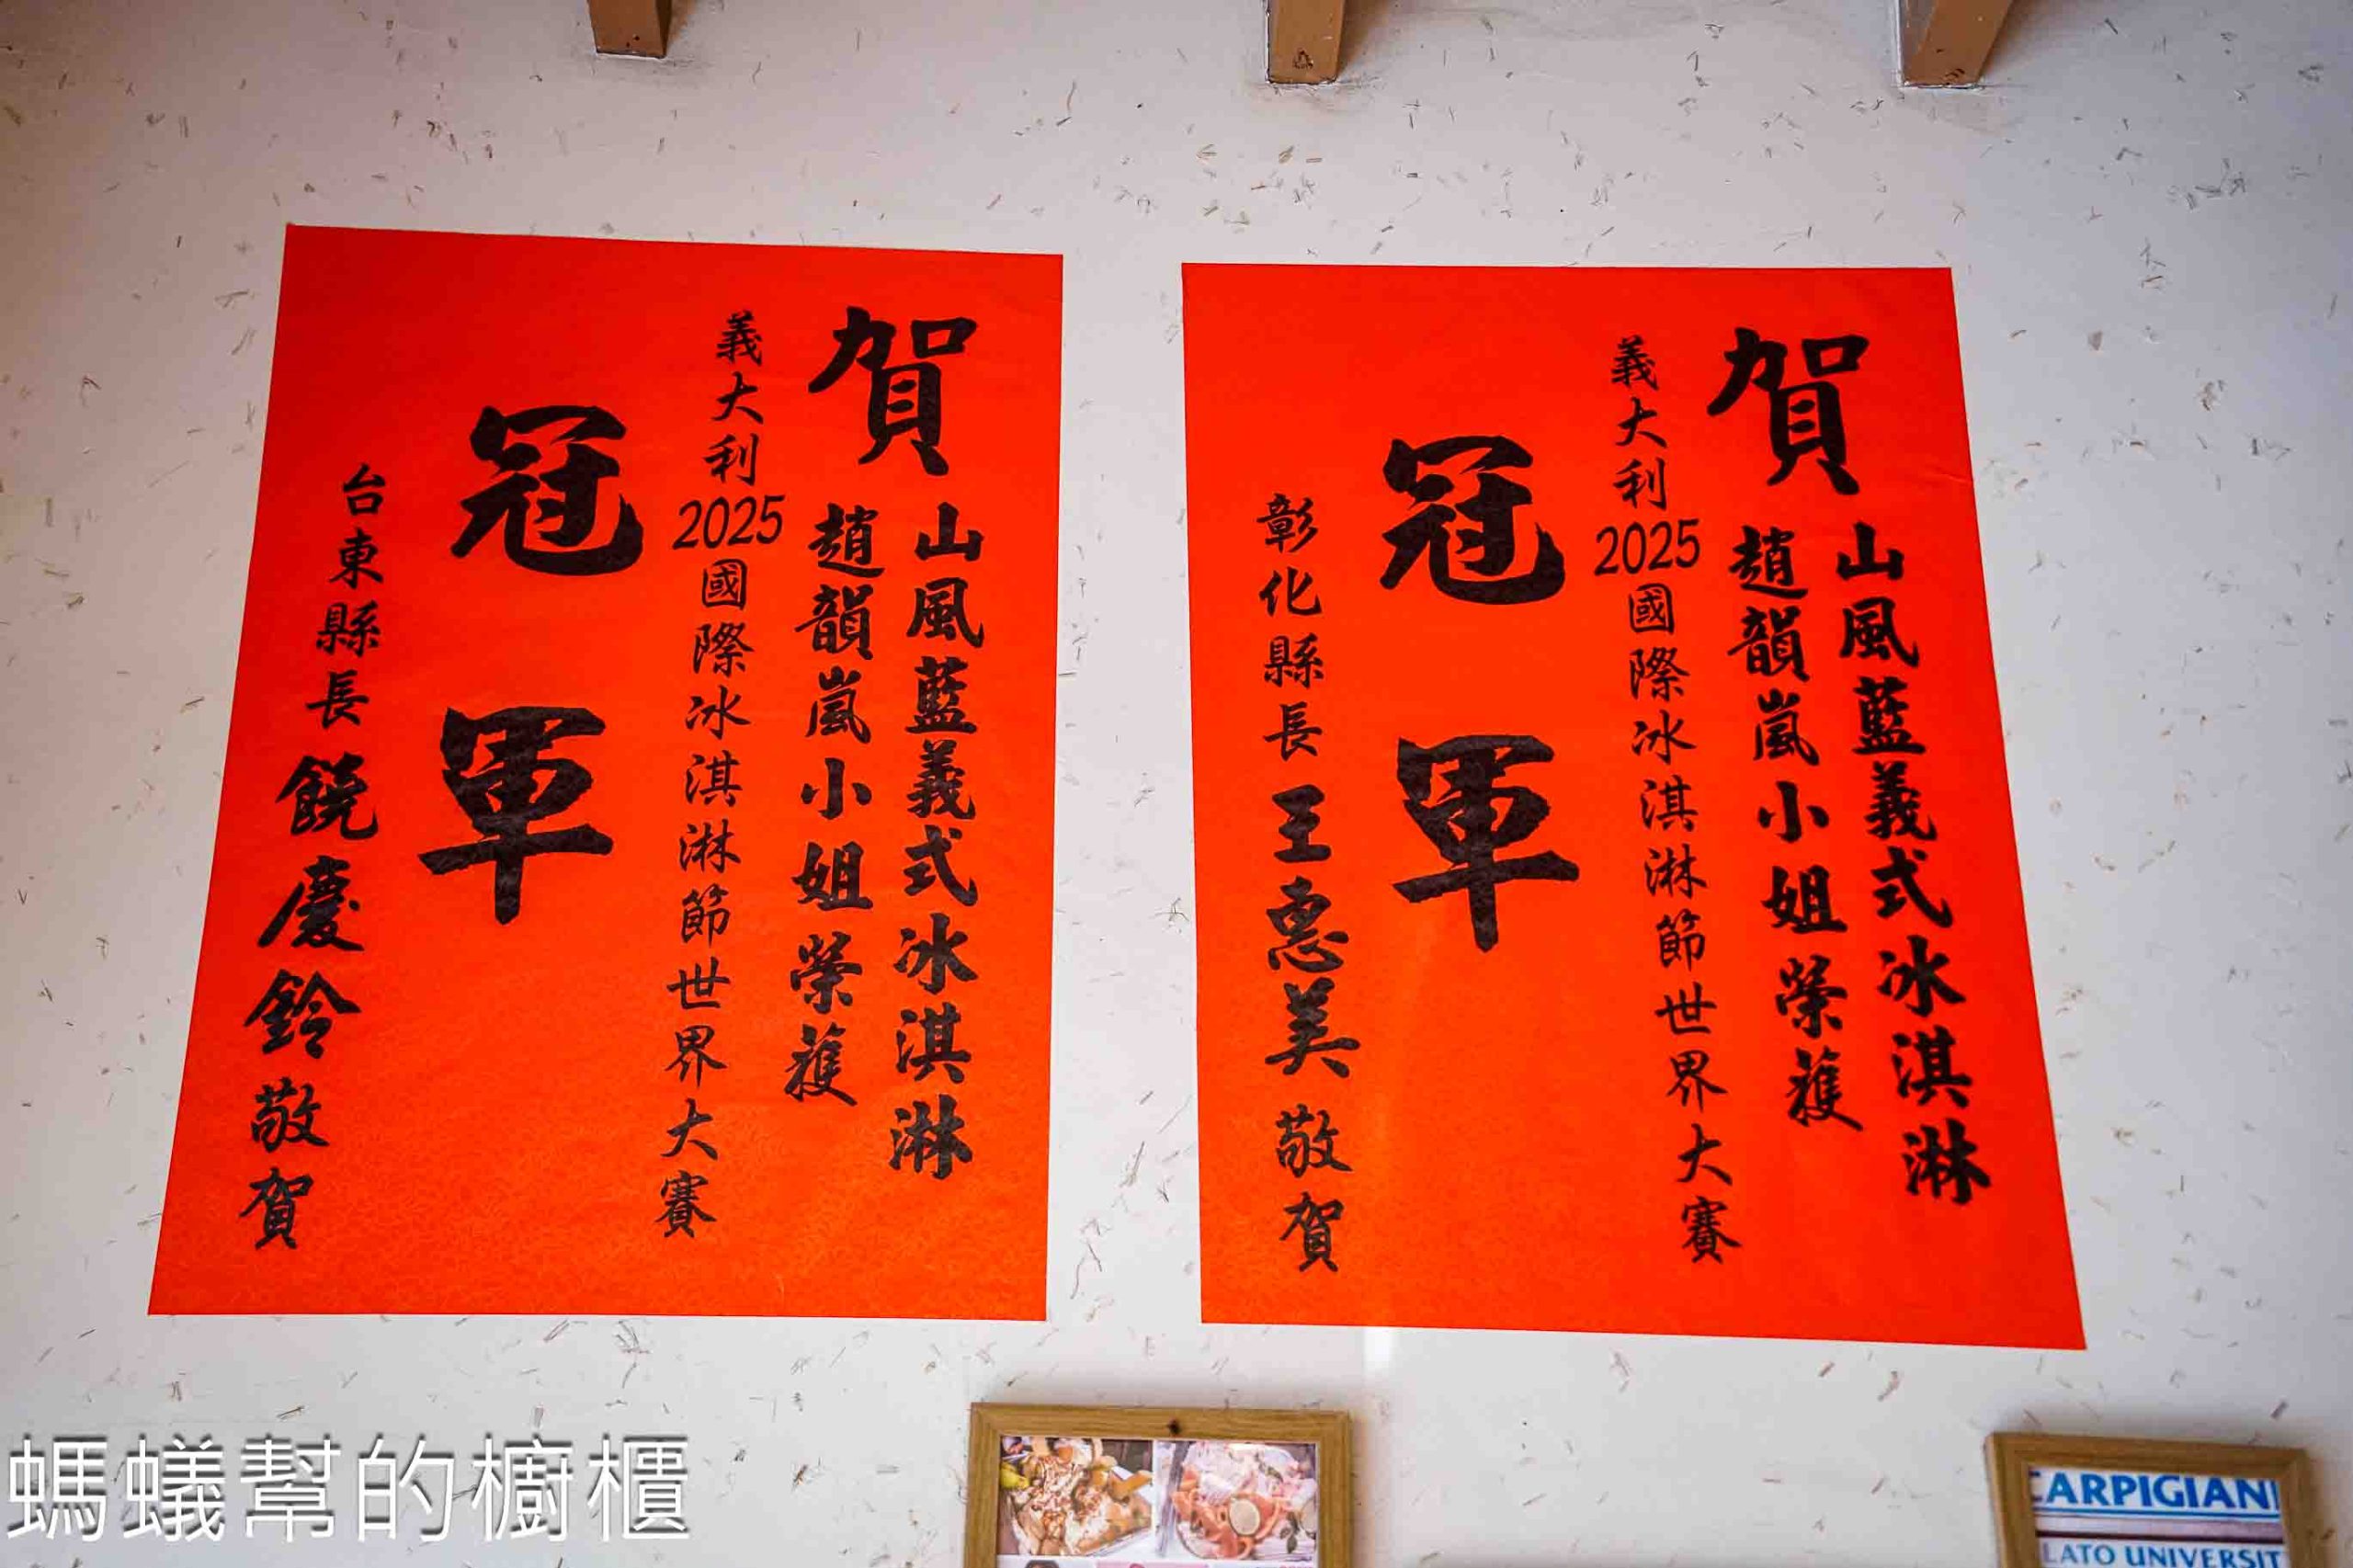 賀
山風藍義式冰淇淋
趙韻嵐小姐榮獲
義大利2025國際冰淇淋節世界大賽
冠軍
台東縣長饒慶鈴敬賀
賀
山風藍義式冰淇淋
趙韻嵐小姐榮獲
義大利2025國際冰淇淋節世界大賽
冠軍
彰化縣長王惠美敬賀
螞蟻幫的櫥櫃
CARPIGIANI
LATO UNIVERSIT